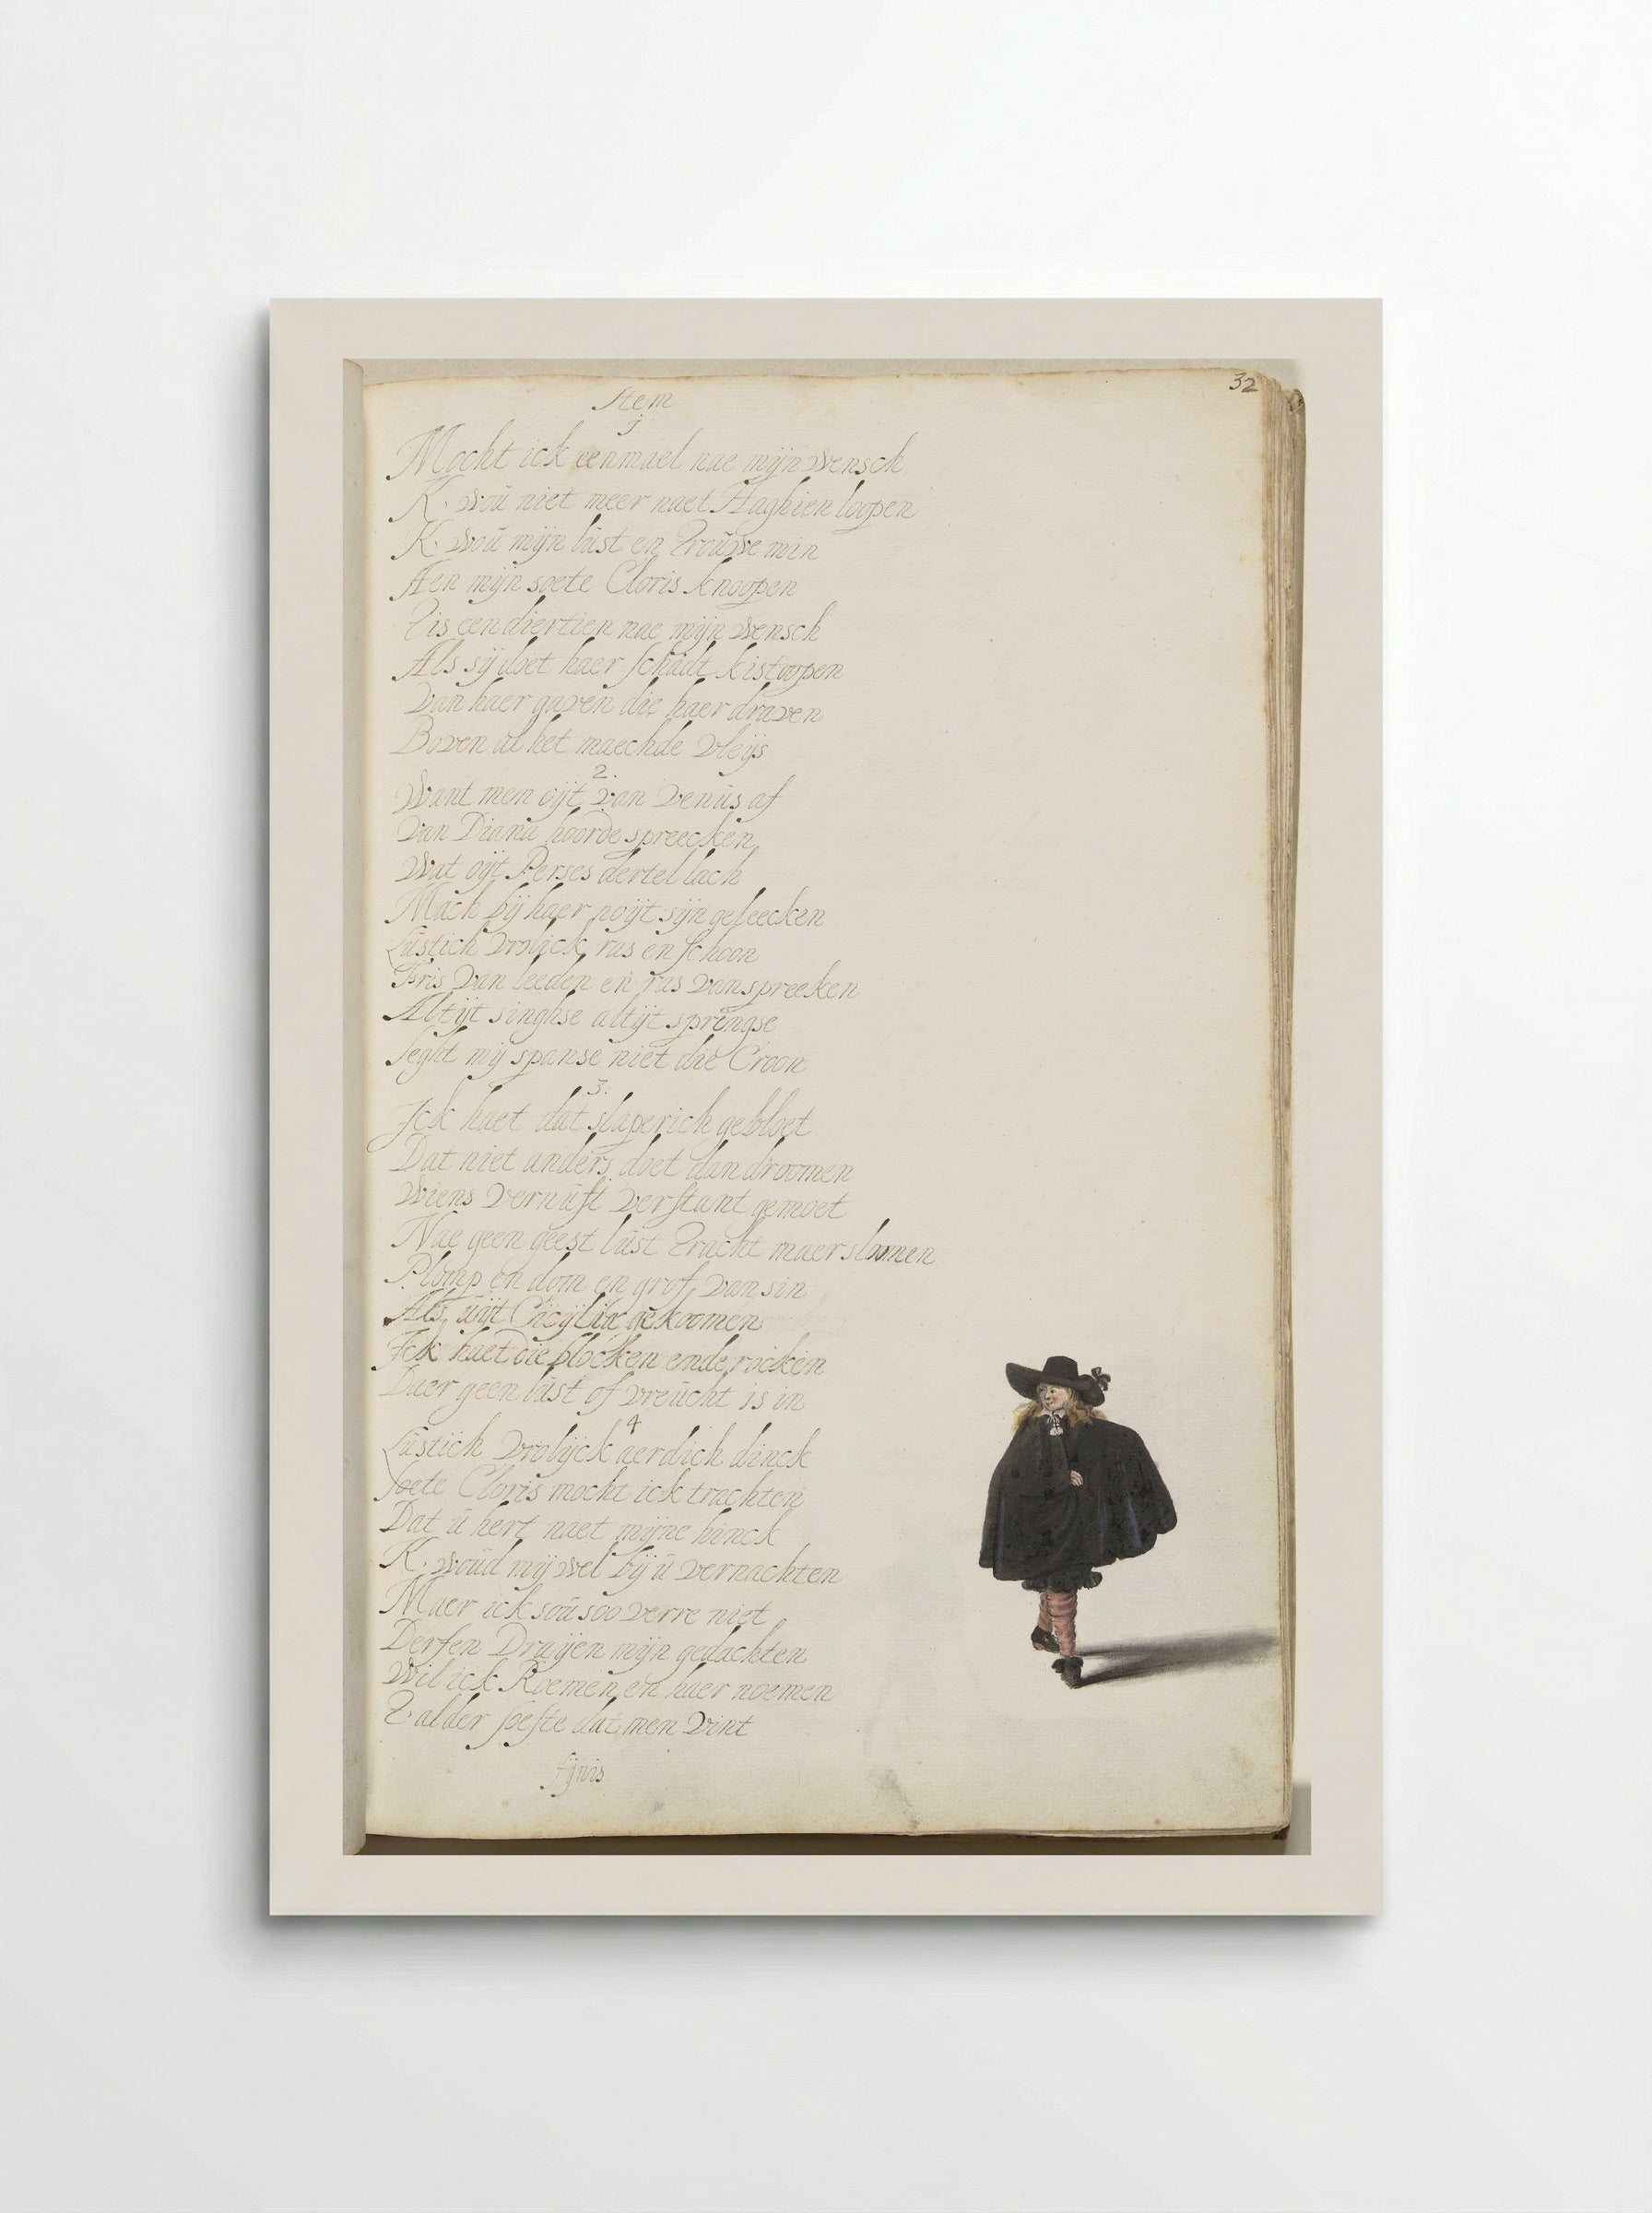 32
Stem
j
Mocht ick eenmael nae mijn wensch
K. woŭ niet meer naet Haghien loopen
K. woŭ mijn lŭst en Troŭwe min
Aen mijn soete Cloris knoopen
Tis een diertien nae mijn wensch
Als sij doet haer schadt kist oopen
Van haer gaven die haer draven
Boven al het maechde vleijs
2.
Want men oijt van Venŭs af
Van Diana hoorde spreecken
Wat oijt Perses dertel lach
Mach bij haer noijt sijn geleecken
Lŭstich vrolick ras en schoon
Fris van leeden en ras van spreeken
Altijt singhse altijt springse
Seght mij spanse niet die Croon
3.
Ick haet dat slaperich gebloet
Dat niet anders doet dan droomen
Wiens vernŭft verstant gemoet
Nae geen geest lŭst Tracht maer slomen
Plomp en dom en grof van sin
Als ŭijt gekoomen
Ick haet die blocken ende rocken
Daer geen lŭst of vreŭcht is in
4
Lŭstich vrolijck aerdich dinck
soete Cloris mocht ick trachten
Dat ŭ hert naet mijne hinck
K. woŭd mij wel bij ŭ vernachten
Maer ick soŭ soo verre niet
Derfen Draijen mijn gedachten
Wil ick Roemen en haer noemen
T. alder soeste dat men vint
fijnis